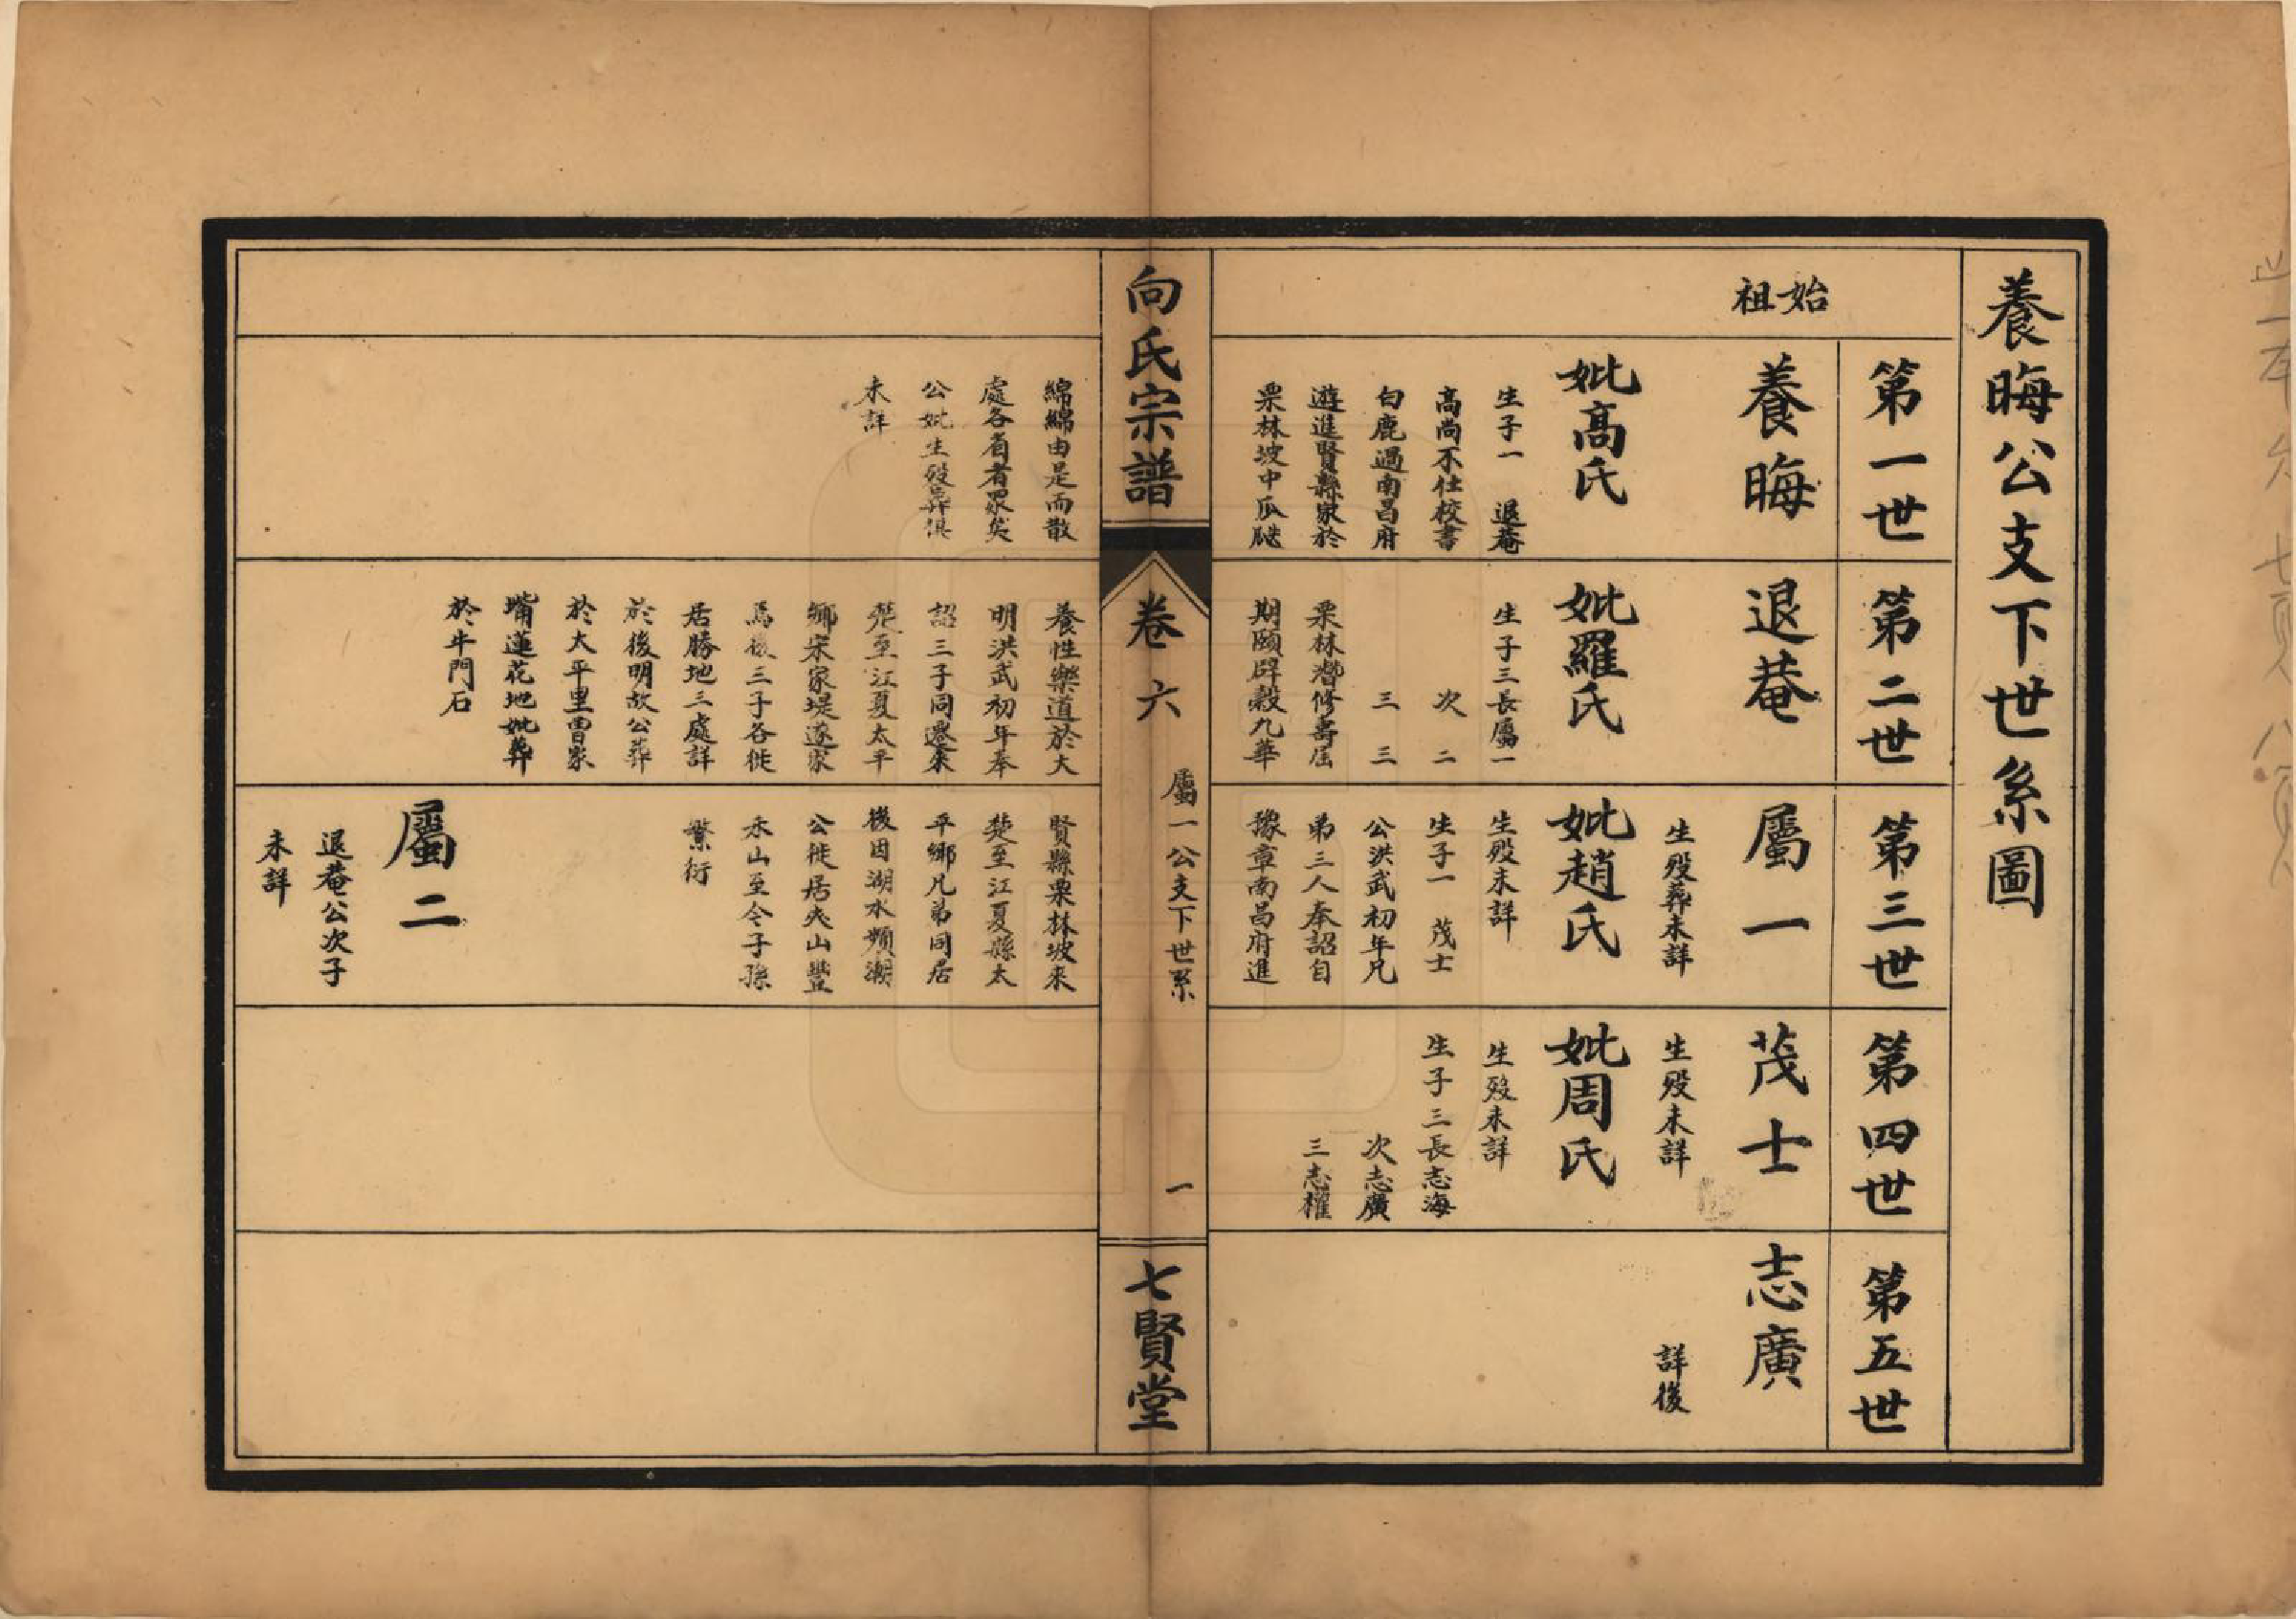 養晦公支下世系圖
始祖
第一世
養晦
妣高氏
生子一 退菴
高尚不仕校書
白鹿過南昌府
遊進賢縣家於
栗林坡中瓜瓞
綿綿由是而散
處各省者眾矣
公妣生殁葬俱
未詳
第二世
退菴
妣羅氏
生子三長屬一
次 二
三 三
栗林潛修壽屆
期頤辟穀九華
養性樂道於大
明洪武初年奉
詔三子同遷來
楚至江夏太平
鄉宋家堤遂家
焉後三子各徙
居勝地三處詳
於後明故公葬
於大平里曹家
嘴蓮花地妣葬
於牛門石
第三世
屬一
生殁葬未詳
妣趙氏
生殁未詳
生子一 茂士
公洪武初年兄
弟三人奉詔自
豫章南昌府進
賢縣栗林坡來
楚至江夏縣太
平鄉兄弟同居
後因湖水頻潮
公徙居夾山豐
禾山至今子孫
繁衍
屬二
退菴公次子
未詳
第四世
茂士
生殁未詳
妣周氏
生殁未詳
生子三長志海
次志廣
三志權
第五世
志廣
詳後
向氏宗譜
卷六
屬一公支下世系
一
七賢堂